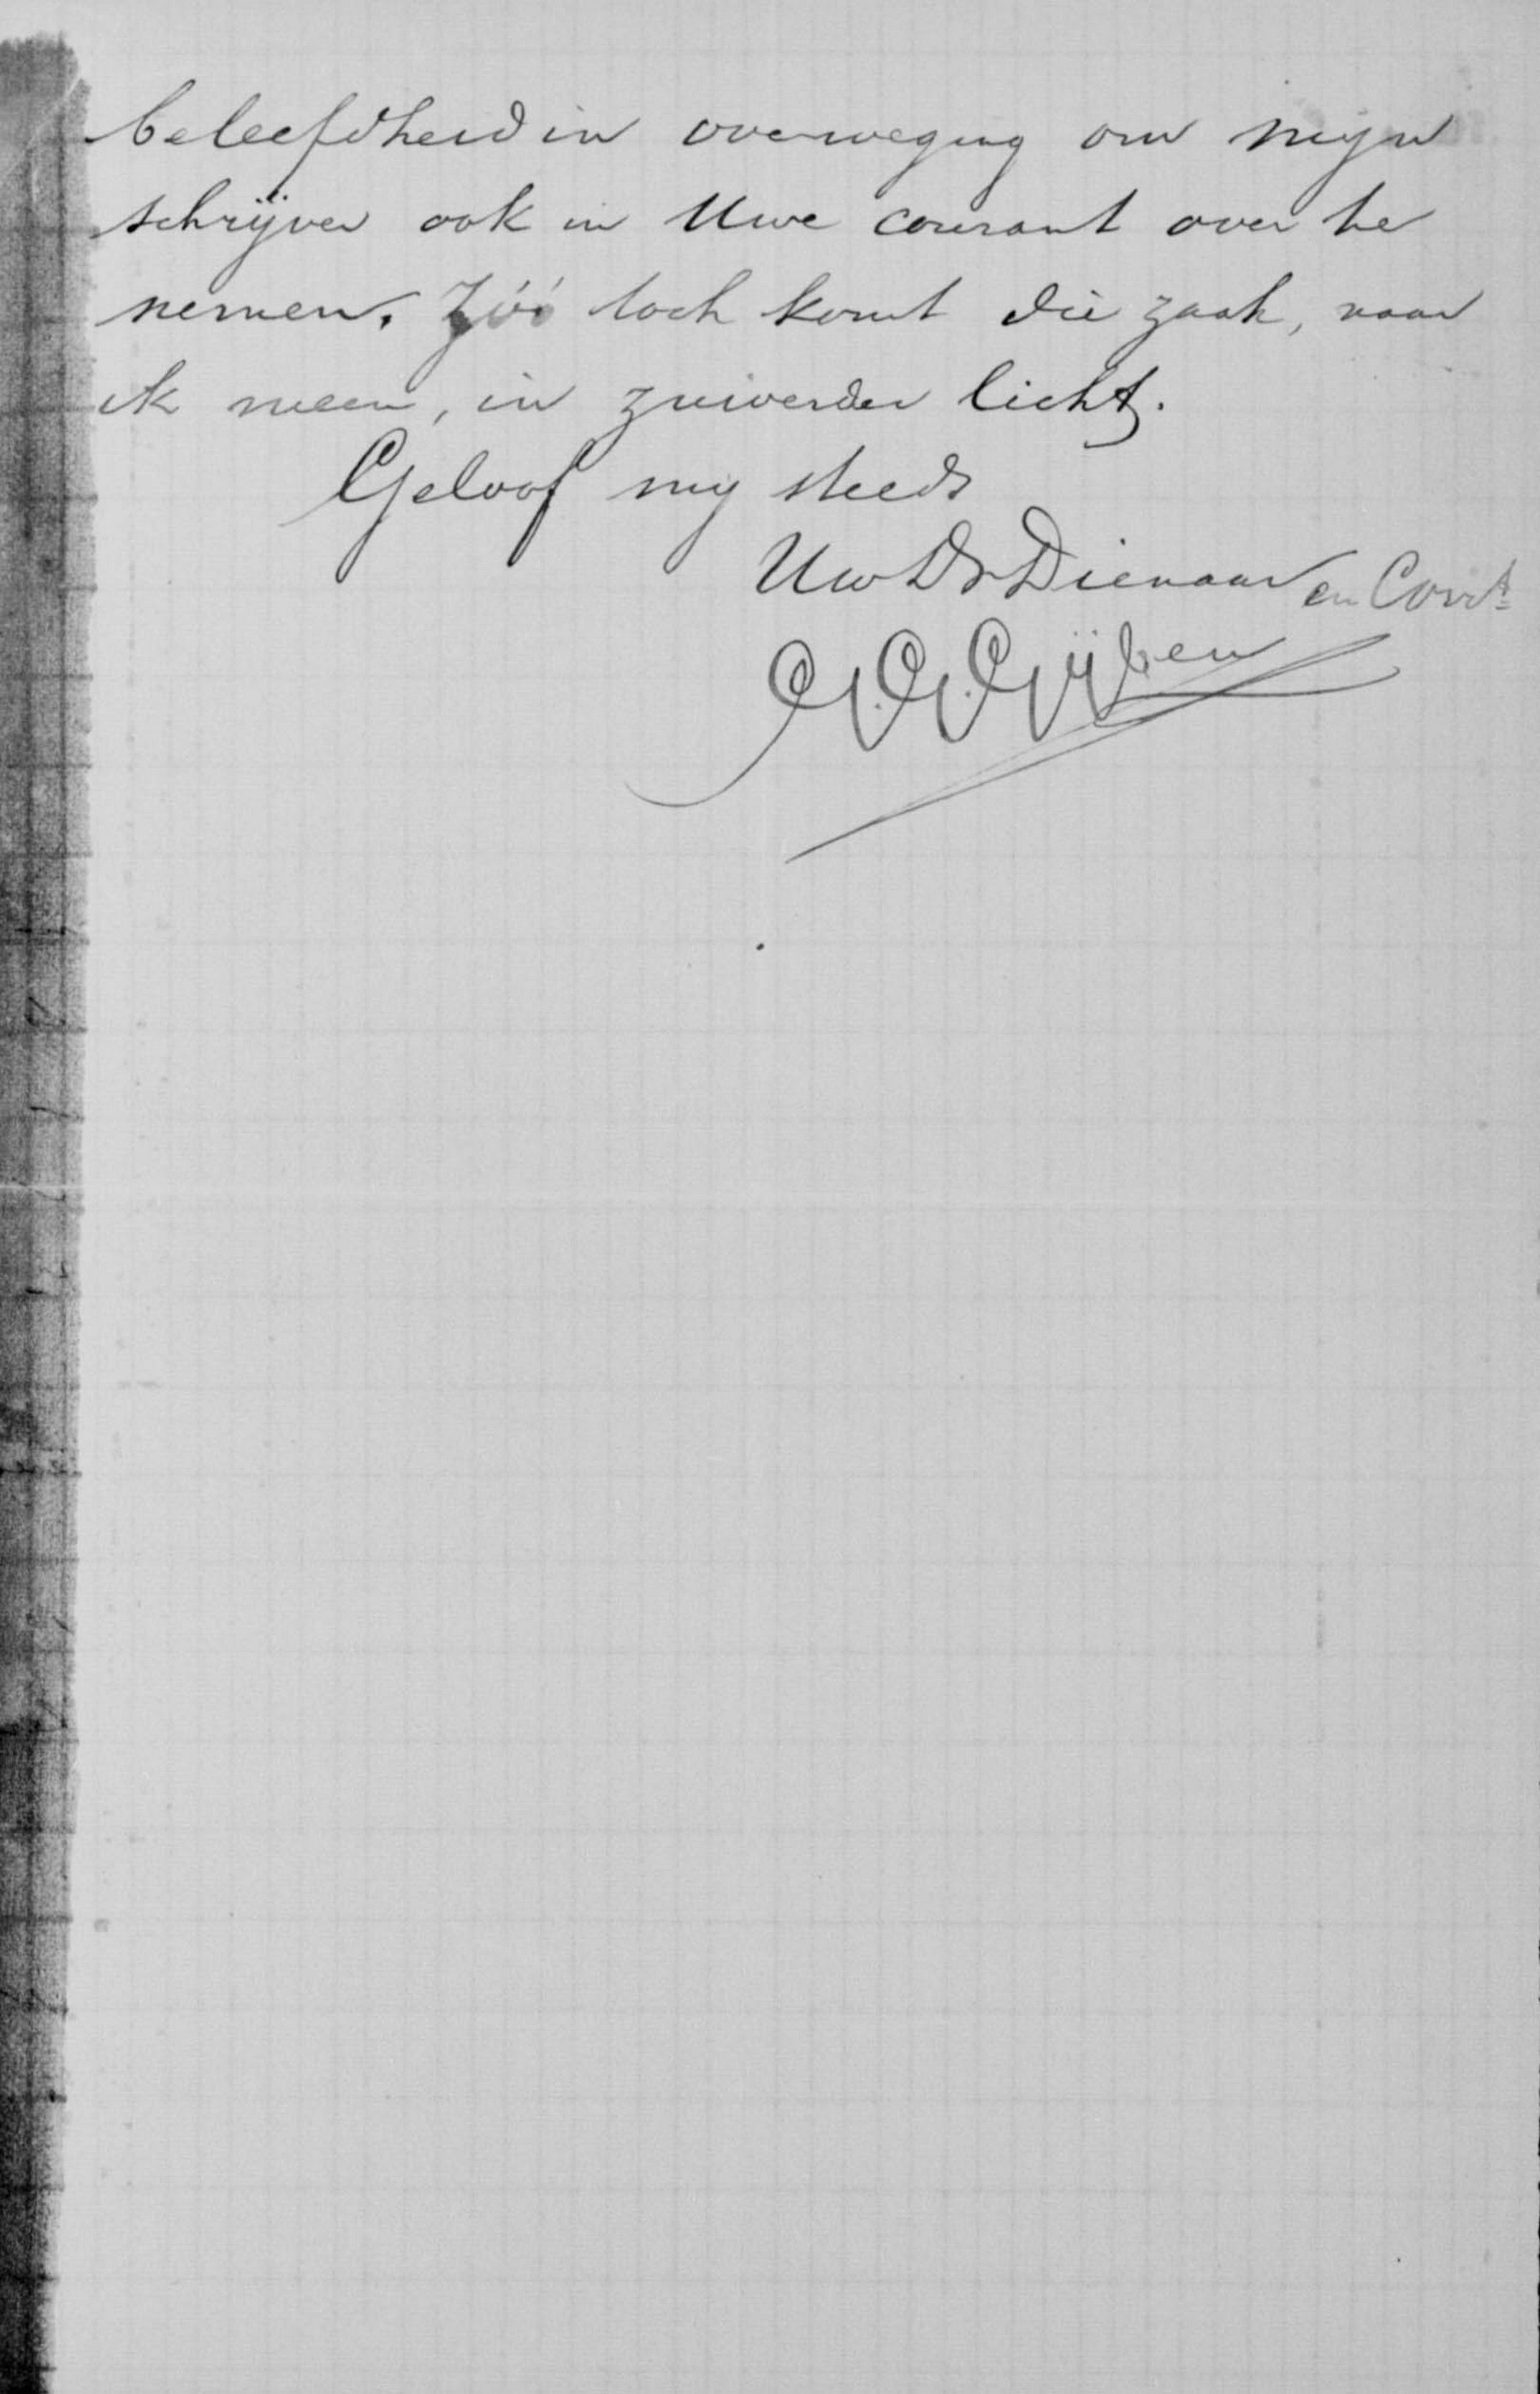 beleefdheid in overweging om mijn
schrijven ook in Uwe courant over te
nemen. Zóó toch komt die zaak, naar
ik meen, in zuiverder licht.
Geloof mij steeds
Uw Dr Dienaar en Corrt
G. G. Gijben